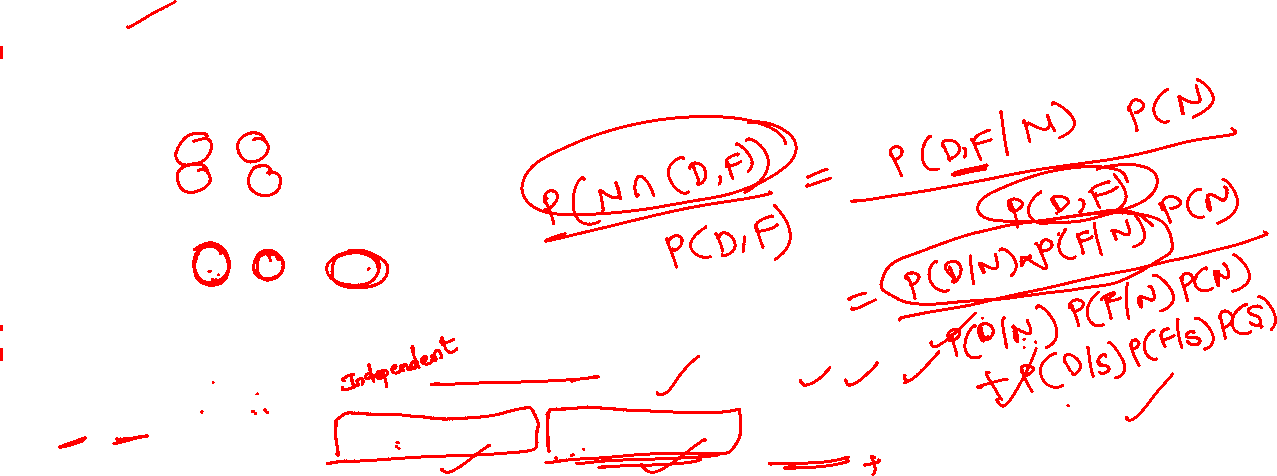 P(N∩(D,F)) / P(D,F) = P(D,F/N) P(N) / P(D,F)
= P(D/N)×P(F/N) P(N) / P(D/N) P(F/N) P(N)
+ P(D/S) P(F/S) P(S)
Independent
+